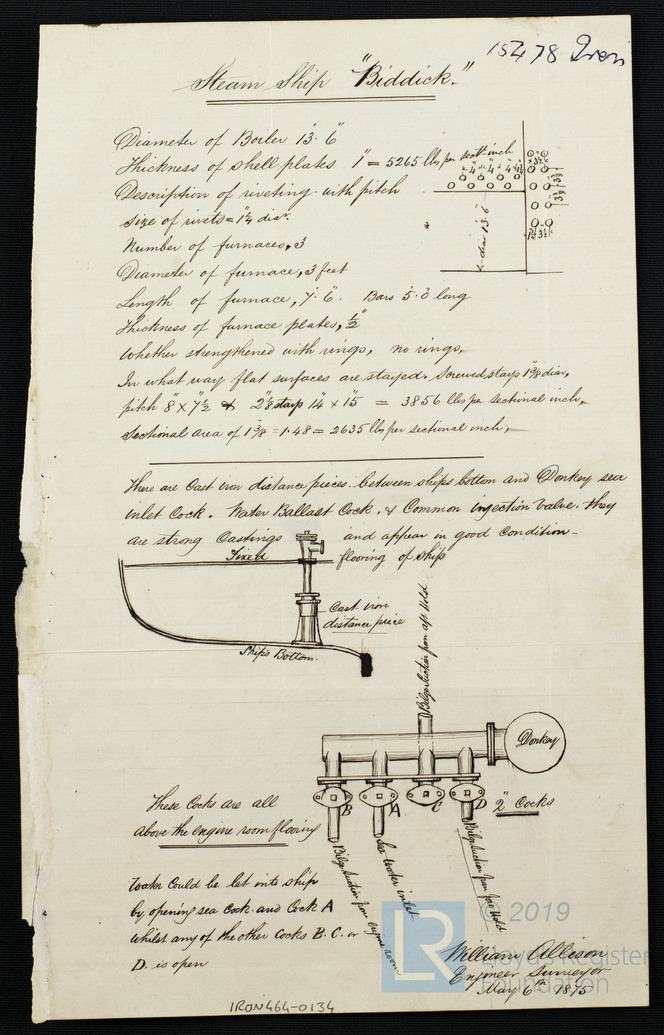 15478 Iron
Steam Ship "Biddick."
Diameter of Boiler 13'. 6"
Thickness of shell plates 1" = 5265 lbs per sectl inch
Description of riveting with pitch
Size of rivets = 1¼ diar.
Number of furnaces, 3
Diameter of furnace, 3 feet
Length of furnace, 7'. 6". Bars 5'. 0" long
Thickness of furnace plates, ½"
Whether strengthened with rings, no rings,
In what way flat surfaces are stayed. Screwed stays 1⅜ diar,
pitch 8" x 7½ & 2⅛" stays 14" x 15" = 3856 lbs per sectional inch,
Sectional area of 1⅜ = 1.48 = 2635 lbs per sectional inch,
4" 4" 4"
3½
3½
1¼ 3½
diar 13'. 6"
There are Cast iron distance pieces between ships bottom and Donkey sea
inlet Cock. Water Ballast Cock, & Common injection Valve. they
are strong Castings and appear in good condition
Fixed flooring of ship
Cast iron
distance piece
Ship's Bottom.
Bilge Suction from aft Hold
Donkey
B A C D
2" Cocks
These Cocks are all
above the engine room flooring
Bilge Suction from engine room
Sea water inlet
Bilge Suction from fore Hold
Water could be let into ship
by opening sea Cock and Cock A
whilst any of the other Cocks B. C. or
D. is open
William Allison
Engineer Surveyor
May 6th 1875
IRON464-0134
LR
© 2019
Lloyd's Register
Foundation